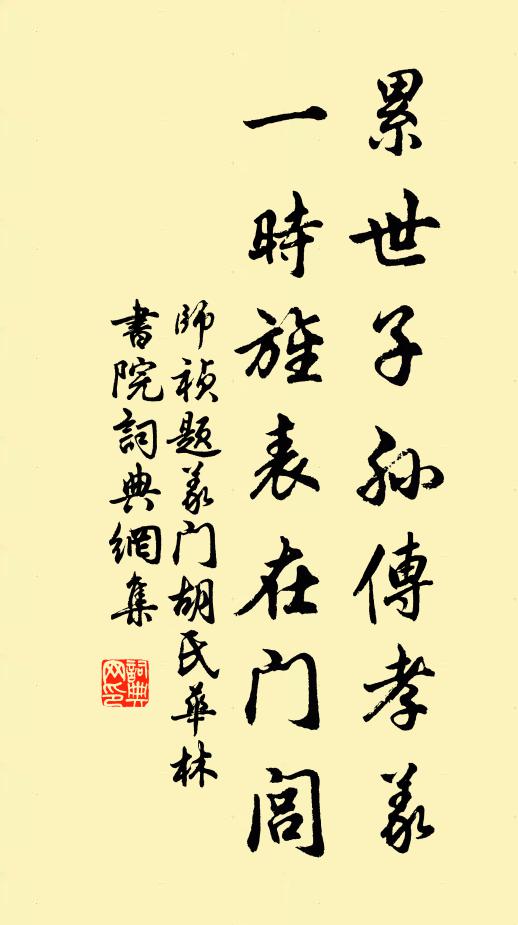 累世子孙傳孝義
一時旌表在門閭
師祯題義门胡氏華林
書院詞典網集
詞典网印